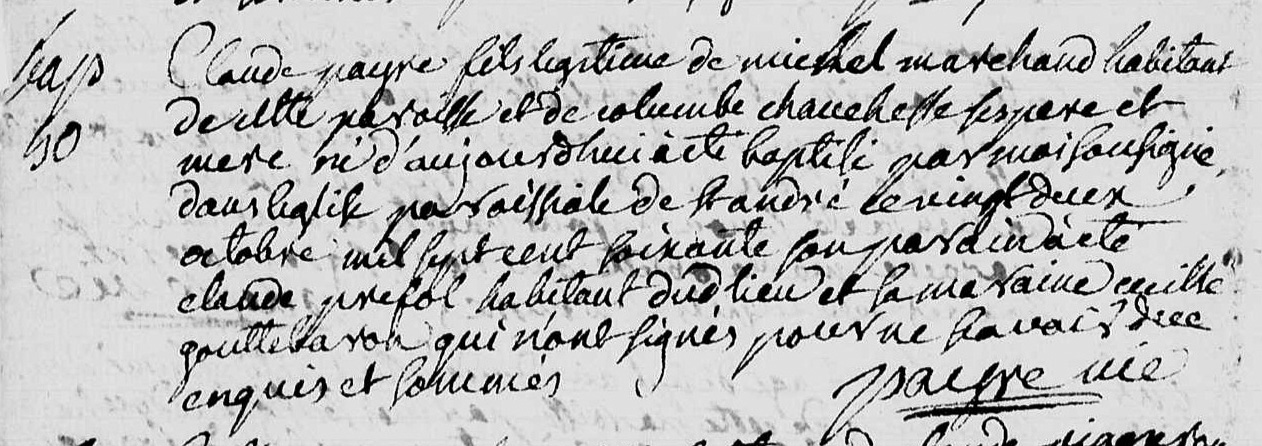 bap
50
Claude payre fils legitime de michel marchand habitant
de cette paroisse et de columbe chauchesse ses pere et
mere né d'aujourdhui à eté baptisé par moi soussigné,
dans leglise paroissiale de st andré le vingt deux
octobre mil sept cent soixante son parain à eté
claude presol habitant dud lieu et sa maraine cecille
gouttebaron qui n'ont signés pour ne scavoir de ce
enquis et sommés
payre vic